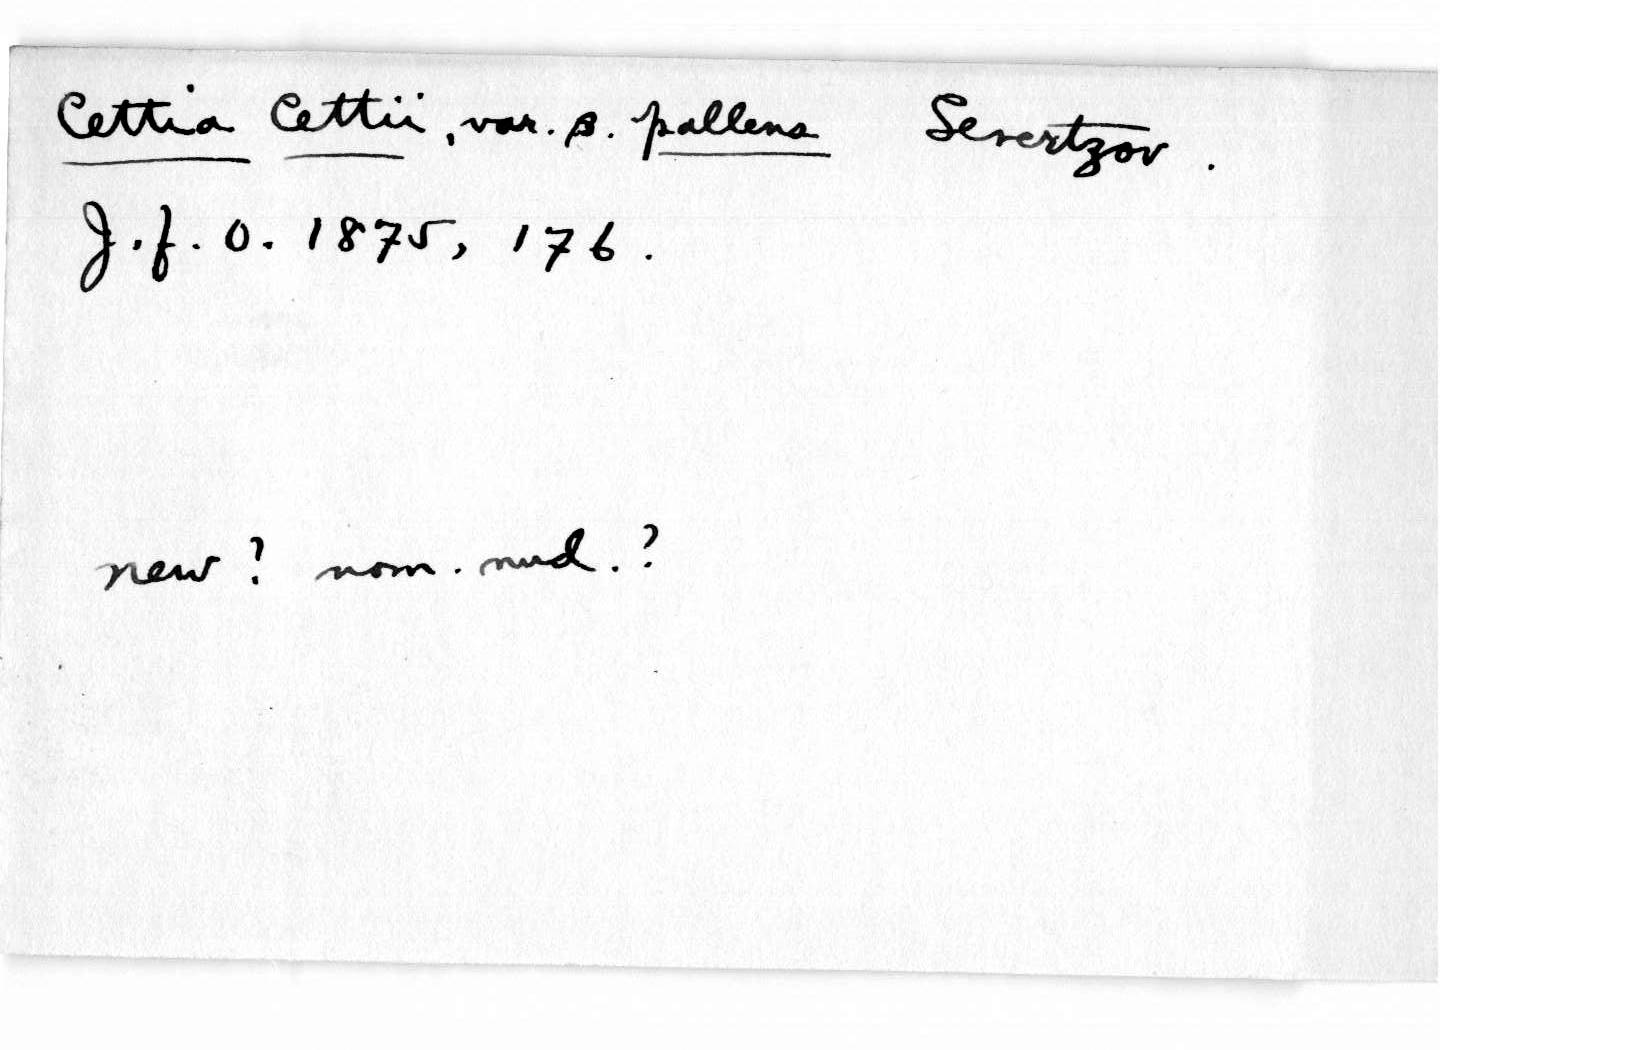 Cettia Cettii, var. β. pallens Severtzov.
J. f. O. 1875, 176.
new? nom. nud.?